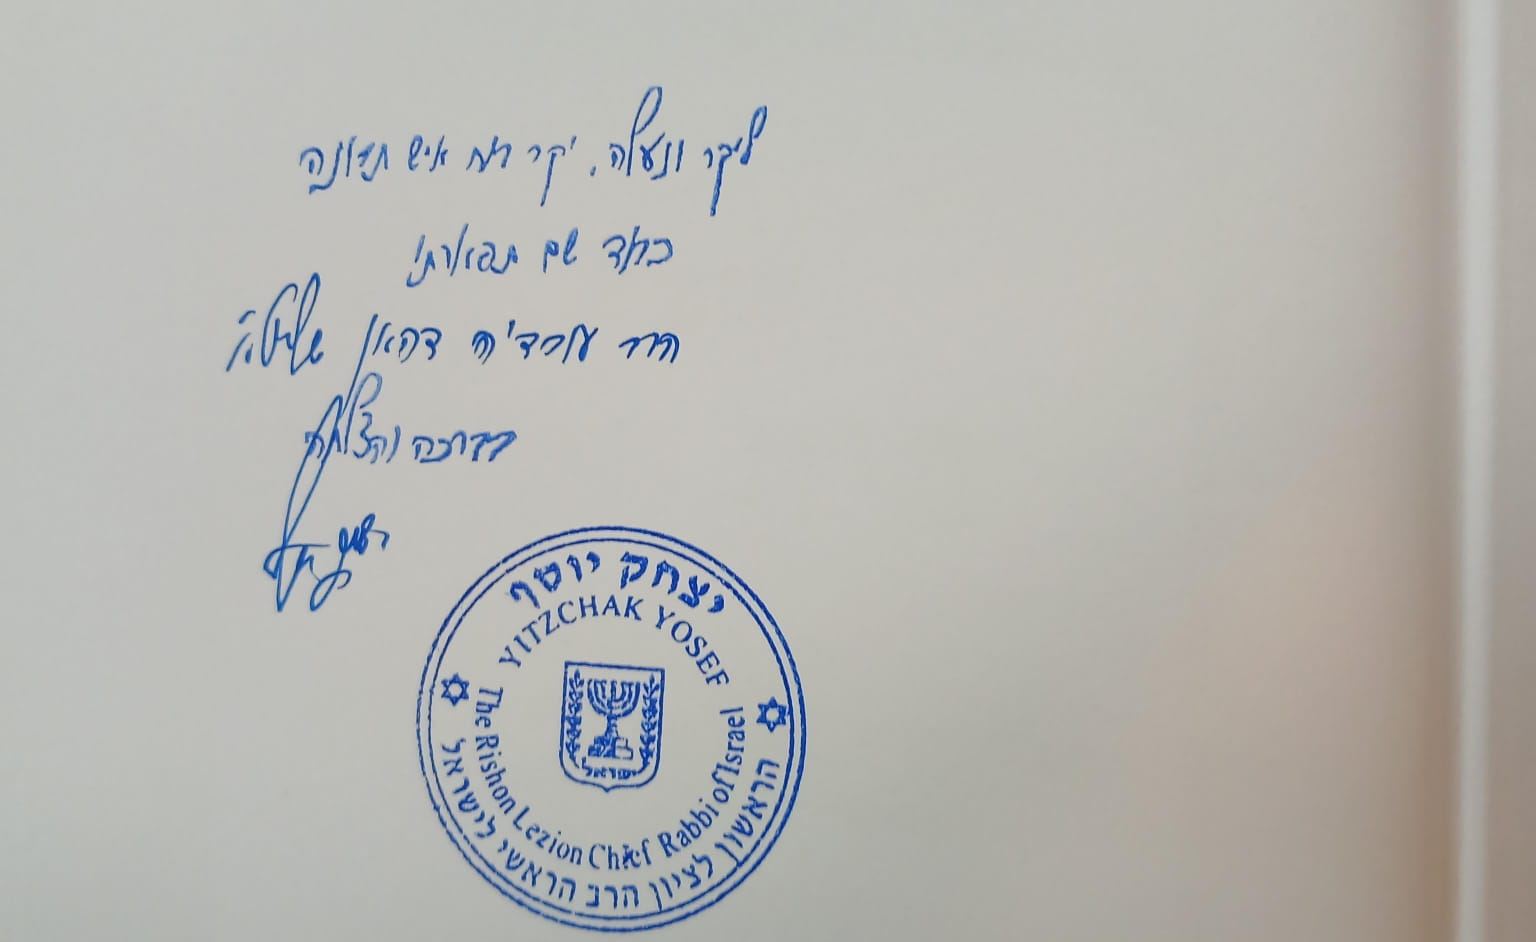 ליקר ונעלה, יקר רוח איש תבונה
כבוד שם תפארתו
הרב עובדיה דהאן שליט"א
בברכה והצלחה
יצחק יוסף
יצחק יוסף
YITZCHAK YOSEF
The Rishon Lezion Chief Rabbi of Israel
הראשון לציון הרב הראשי לישראל
ישראל